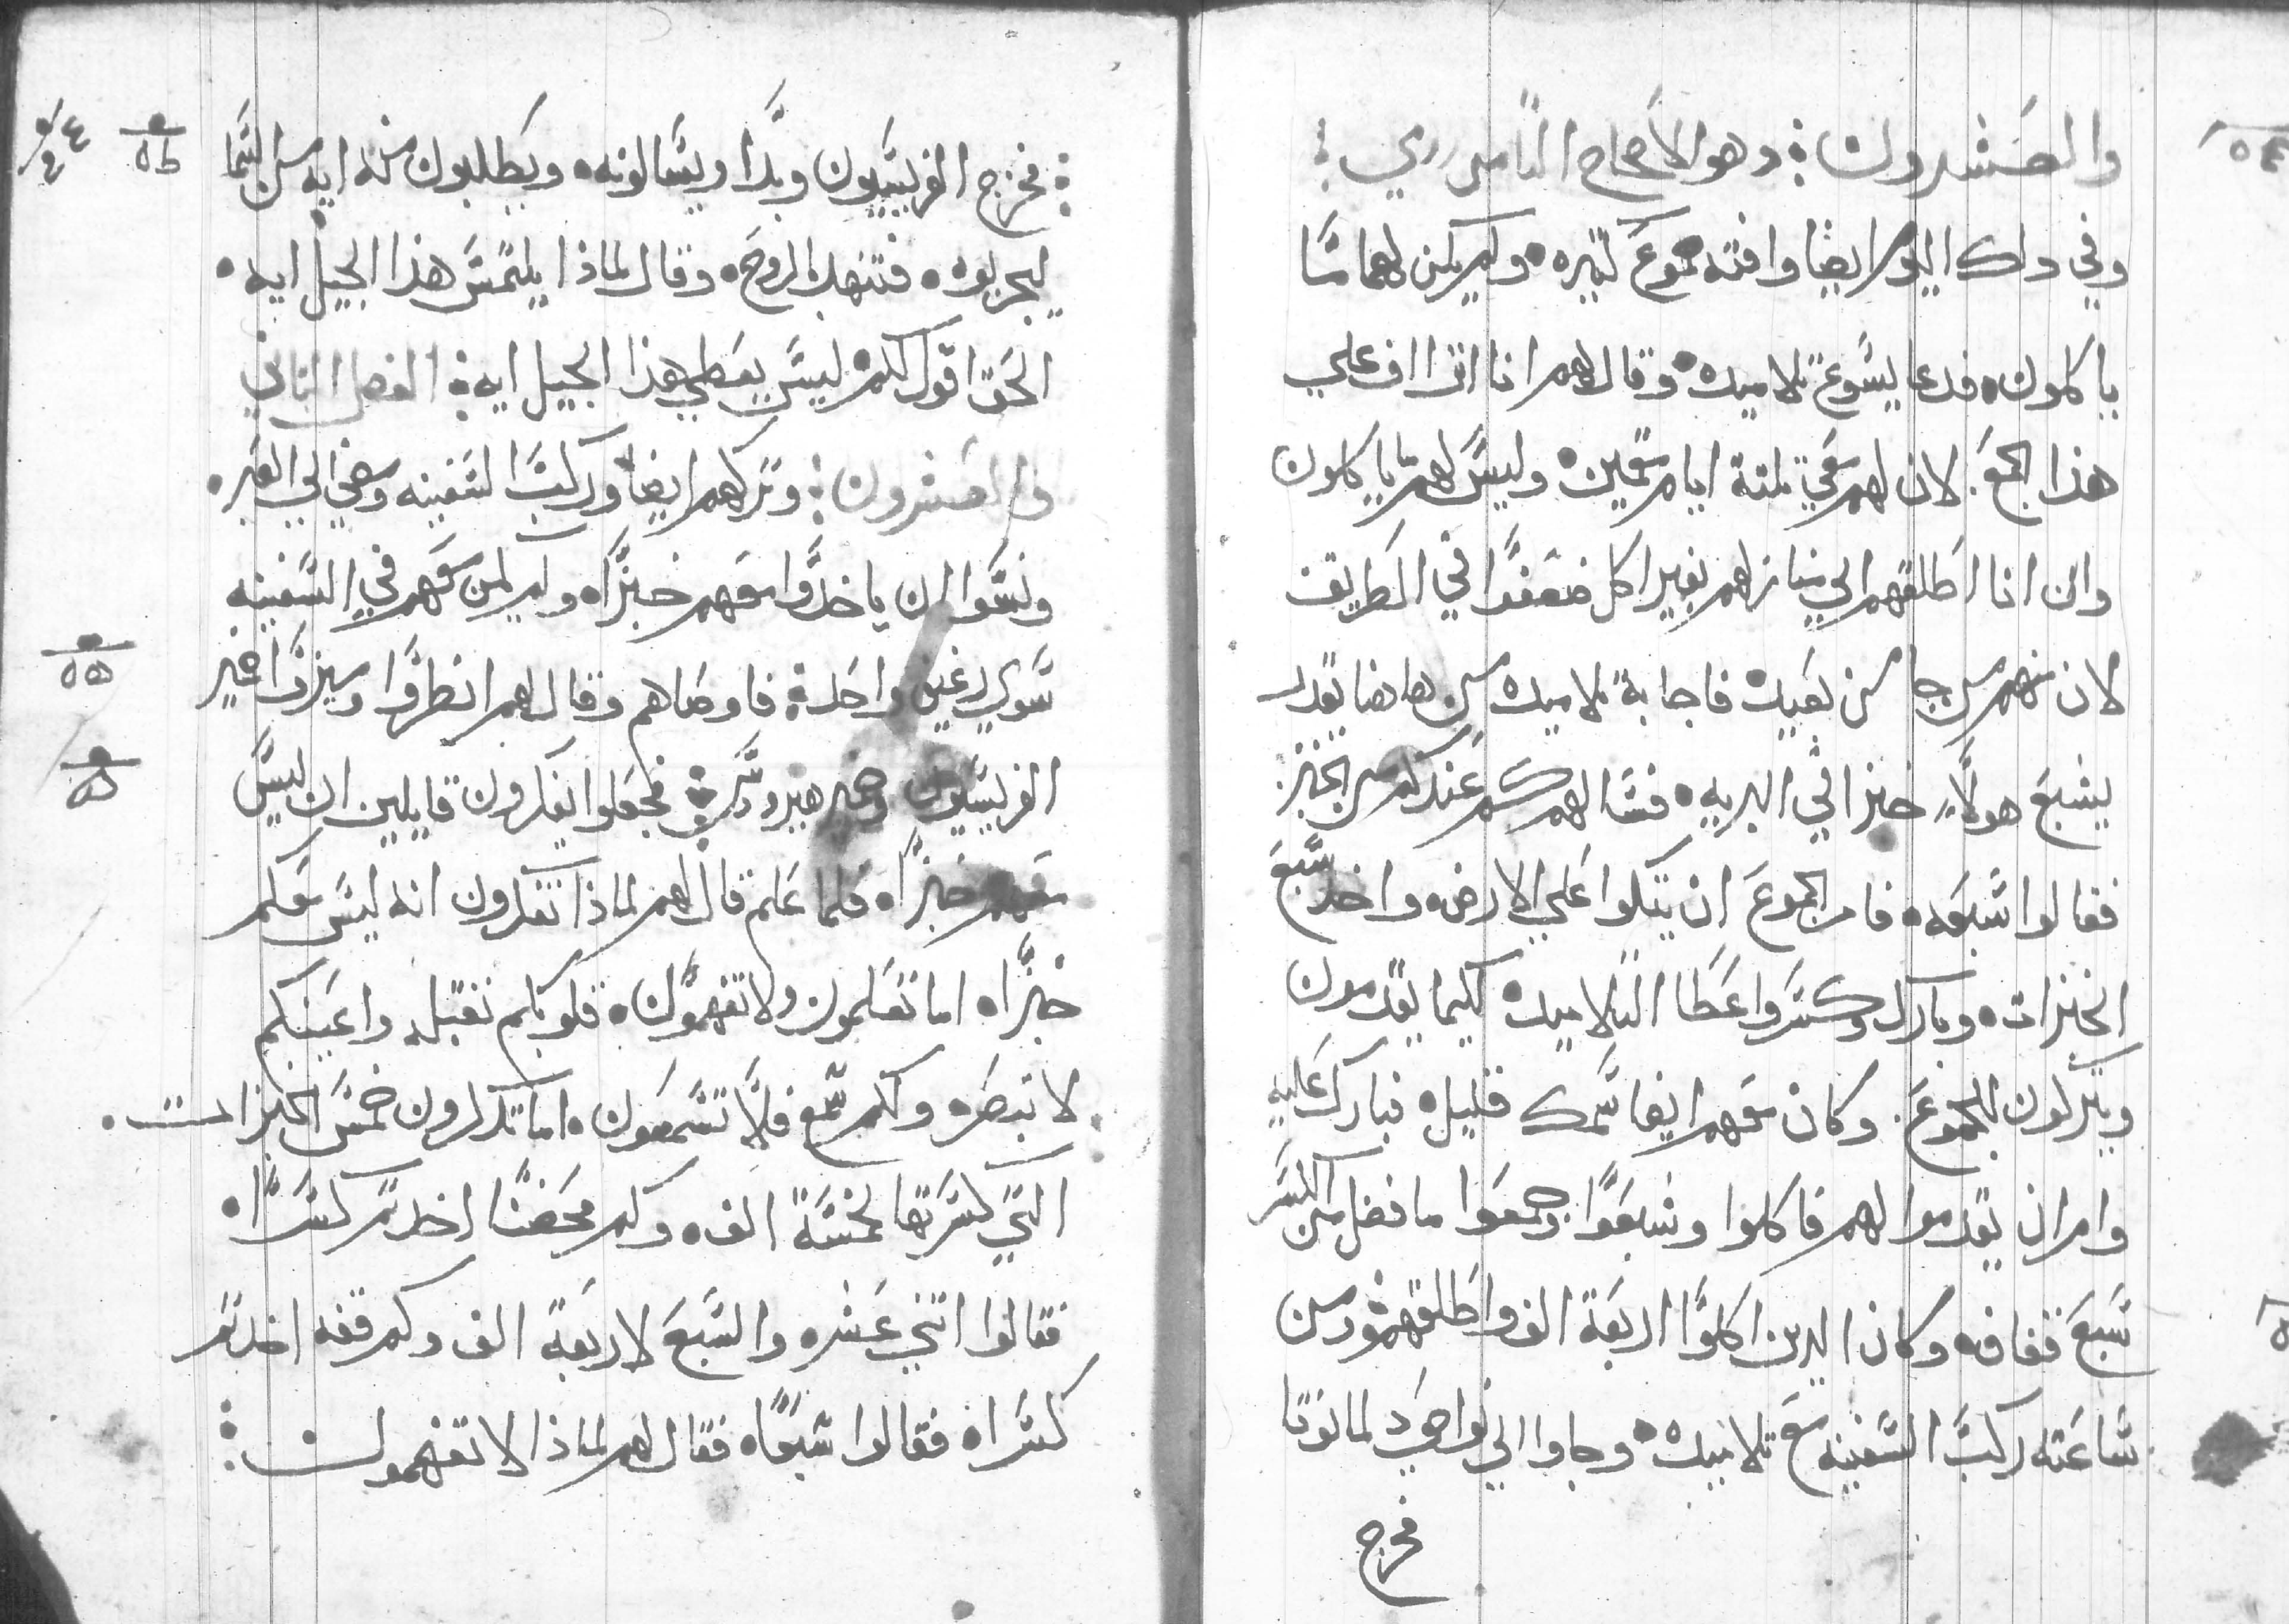 والعشرون: وهو الاصحاح الثامن رري:
وفي دلك اليوم ايضا وافته جموع كتيره. ولم يكن لهما مَّا
ياكلون. فدعا يسَّوع تلاميده. وقال لهم انا اتراف علي
هذا الجمع. لان لهم معي تلتة ايام مقيمين. وليسَّ لهم ما ياكلون
وان انا اطلقتهم الي منازلهم بغير اكل ضعفوا في الطريق
لان منهم من جا من بعيد. فاجابة تلاميده من هاهنا يقدر
يشبع هولاء خبزا في البريه. فسَّالهم كم عندكم من الخبز
فقالوا سَّبعه. فامر الجموع ان يتكوا علي الارض. واخد سَّبع
الخبزات. وبارك وكسَّر واعطا التلاميده كيما يقدمون
ويتركون للجموع. وكان معهم ايضا سَّمك قليل. فبارك عليه
وامر ان يقدموا لهم فاكلوا وشبعوا. وجمعوا ما فضل من الكسَّر
سَّبع قفافه. وكان الدين اكلوا اربعة الف. واطلقهم ومن
سَّاعته ركب السَّفينه مع تلاميده. وجاوا الي نواحي د لمانوتا
فخرج
: فخرج الفريسَّيون وبدَّا ويسَّالونه. ويطلبون منه ايه من السَّما
ليجربوه. فتنهد بالروح. وقال لماذا يلتمسَّ هذا الجيل ايه.
الحق اقول لكم ليسَّ يعطي هذا الجيل ايه: الفصل التاني
والعشرون: وتركهم ايضا وركب السَّفينه ومضي الي العبر.
ونسَّوا ان ياخدَّوا معهم خبزَّاه ولم يكن معهم في السَّفينه
سَّوي رغيف واحد: فاوصاهم وقال لهم انظرَّوا وميزوَّا خمير
الفريسَّيون وخمير هيرودسَّ: فجعلوا يفكرون قايلين ان ليسَّ
معهم خبزَّاه فلما علم قال لهم لماذا تفكرون انه ليسَّ معكم
خبزَّاه اما تعلمون ولا تفهمون. قلوبكم تقيله واعينكم
لا تبصره ولكم سَّمع فلا تسَّمعون. اما تدكرون خمسَّ الخبزات.
التي كسَّرتها لخمسَّة الف. وكم محضنا اخدتم كسَّراه
فقالوا اتني عشره والسَّبع لاربعة الف وكم قفه اخدتم
كسَّراه فقالوا سَّبعاه فقال لهم لماذا لا تفهمون: